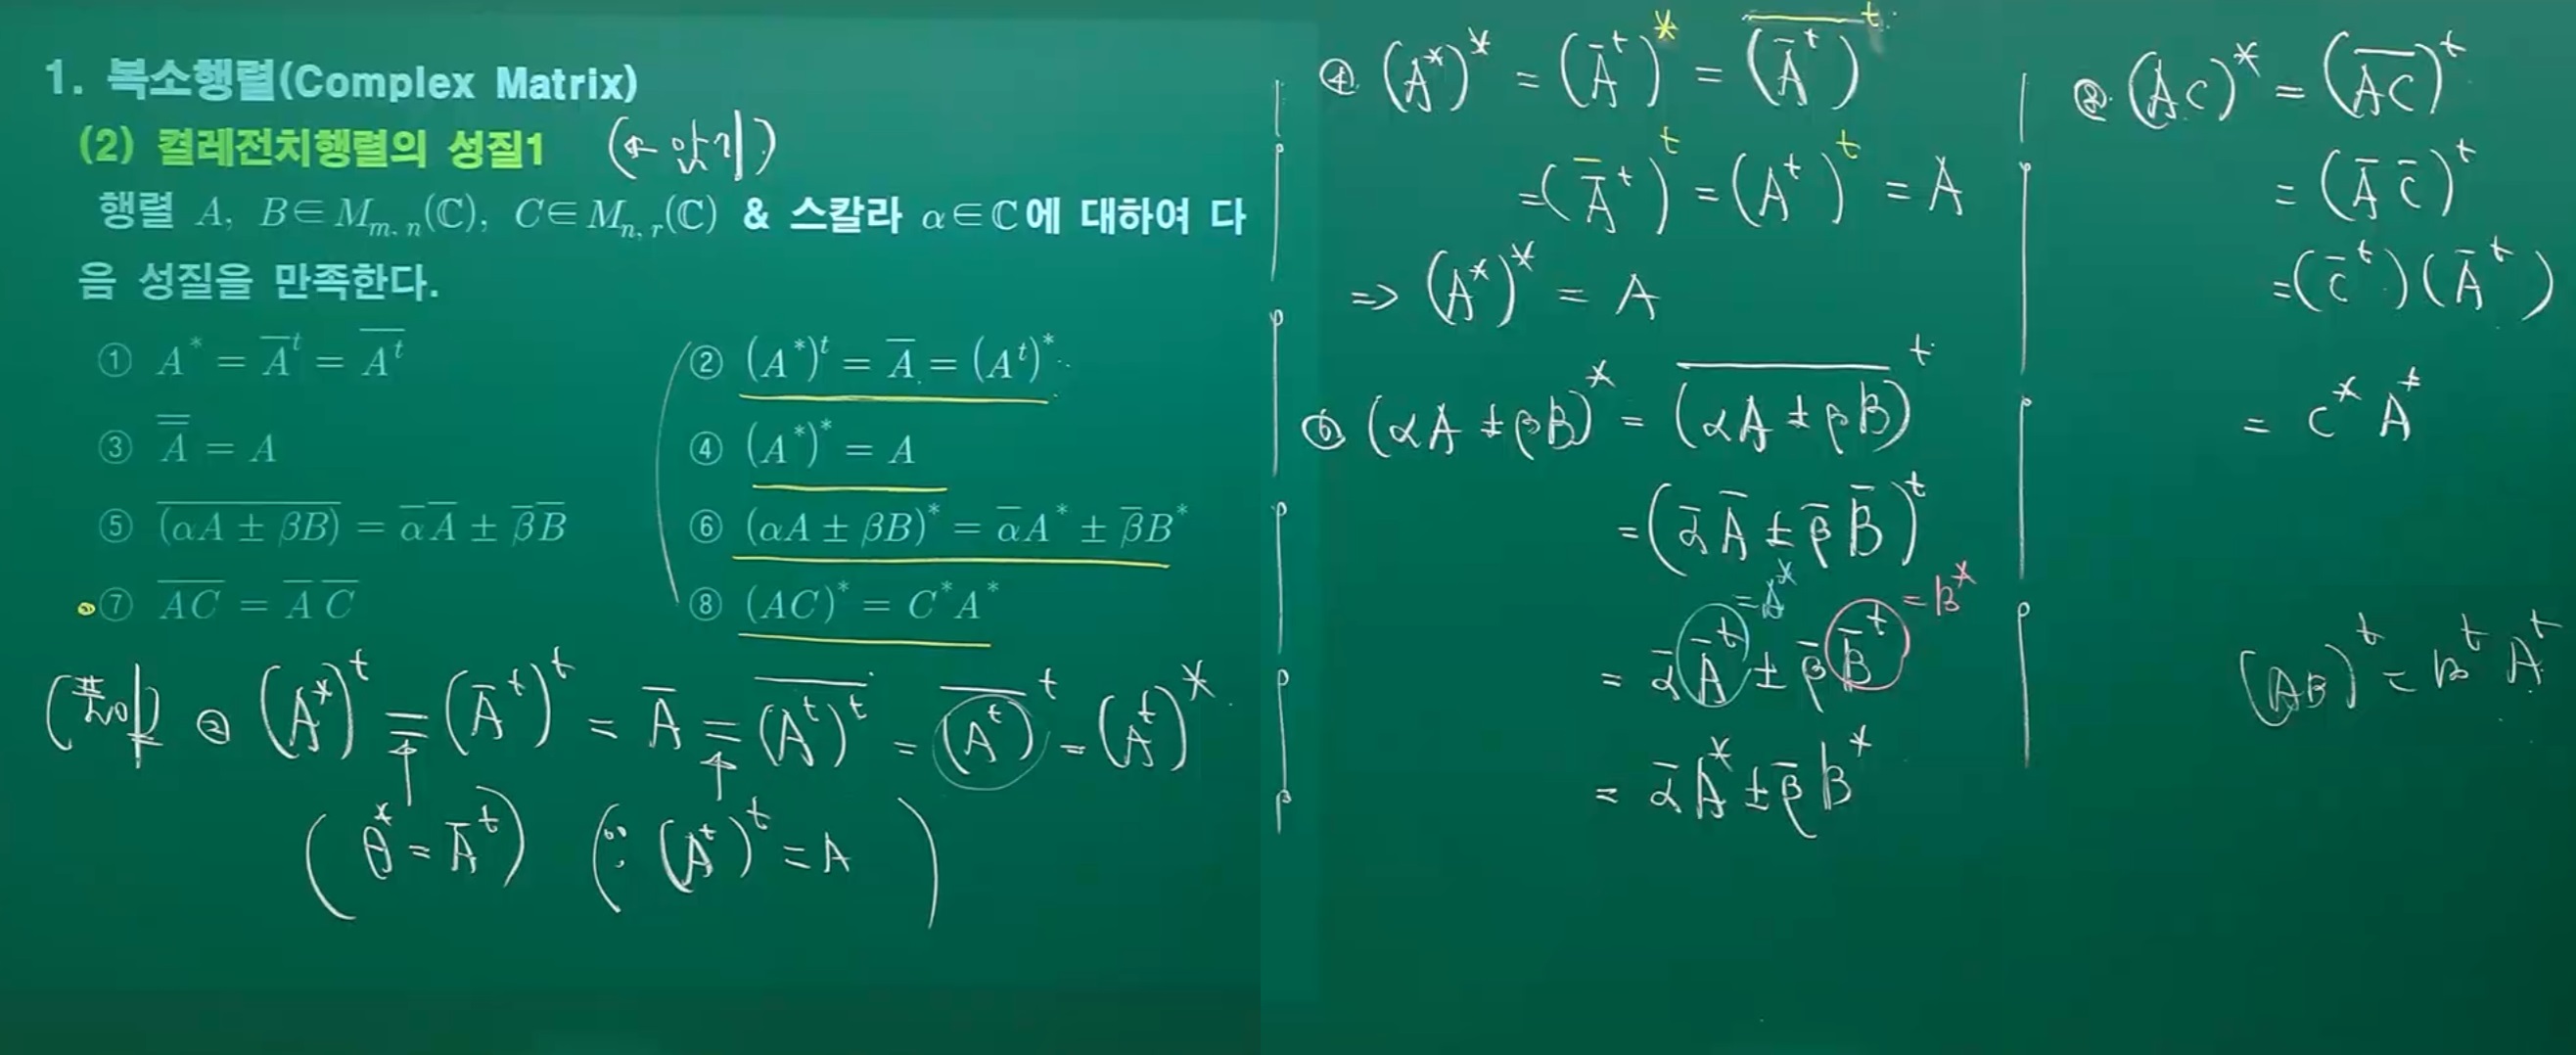 1. 복소행렬(Complex Matrix)
(2) 켤레전치행렬의 성질1 (← 암기)
행렬 A, B∈M_{m, n}(ℂ), C∈M_{n, r}(ℂ) & 스칼라 α∈ℂ에 대하여 다
음 성질을 만족한다.
① A^* = \overline{A}^t = \overline{A^t}
② (A^*)^t = \overline{A} = (A^t)^*
③ \overline{\overline{A}} = A
④ (A^*)^* = A
⑤ \overline{(αA ± βB)} = \overline{α}\overline{A} ± \overline{β}\overline{B}
⑥ (αA ± βB)^* = \overline{α}A^* ± \overline{β}B^*
⑦ \overline{AC} = \overline{A} \overline{C}
⑧ (AC)^* = C^*A^*
(풀이) ② (A^*)^t = (\overline{A}^t)^t = \overline{A} = \overline{(A^t)^t} = \overline{(A^t)}^t = (A^t)^*
(A^* = \overline{A}^t) (∵ (A^t)^t = A)
④ (A^*)^* = (\overline{A}^t)^* = \overline{(\overline{A}^t)}^t
= (\overline{\overline{A}}^t)^t = (A^t)^t = A
=> (A^*)^* = A
⑥ (αA ± βB)^* = \overline{(αA ± βB)}^t
= (\overline{α}\overline{A} ± \overline{β}\overline{B})^t
= A^* = B^*
= \overline{α}\overline{A}^t ± \overline{β}\overline{B}^t
= \overline{α}A^* ± \overline{β}B^*
⑧ (AC)^* = (\overline{AC})^t
= (\overline{A} \overline{C})^t
= (\overline{C}^t)(\overline{A}^t)
= C^* A^*
(AB)^t = B^t A^t